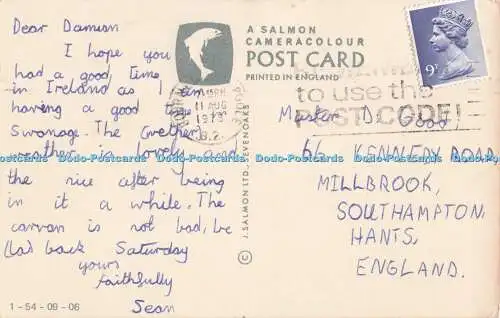 Dear Damian
I hope you
had a good time
in Ireland as I am
having a good time
Swanage. The wether
weather is lovely and
the nice after being
in it a while. The
carvan is not bad, be
Glad back Saturday
yours
faithfully
Sean
1-54-09-06
A SALMON
CAMERACOLOUR
POST CARD
PRINTED IN ENGLAND
© J. SALMON LTD., SEVENOAKS
11 AUG
1973
to use the
POST CODE!
9P
Master D.
66 KENNEDY ROAD
MILLBROOK,
SOUTHAMPTON,
HANTS,
ENGLAND.
Dodo-Postcards Dodo-Postcards Dodo-Postcards Dodo-Postcards Dodo-Postcards Dodo-Postcards